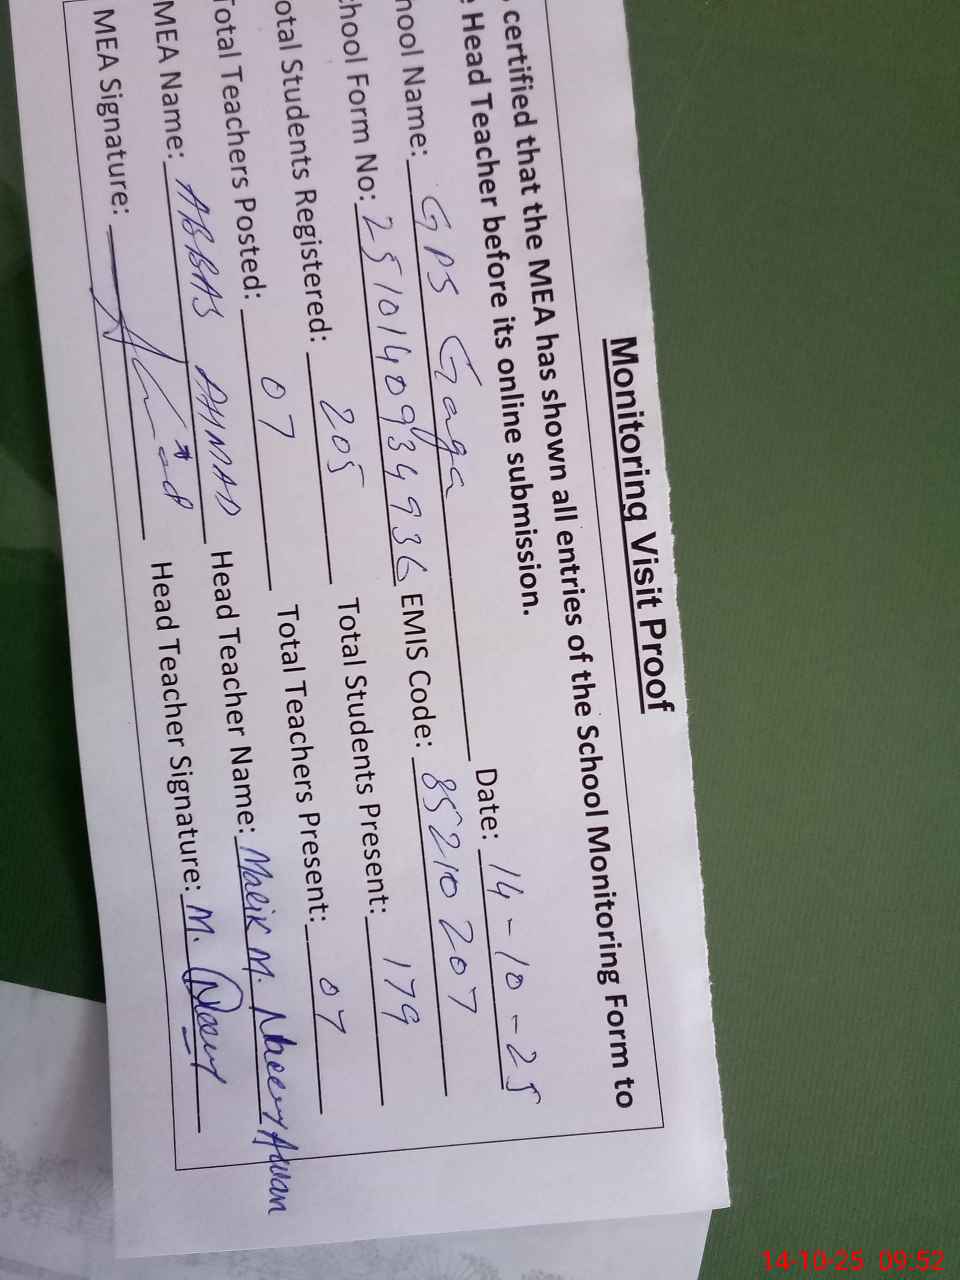 Monitoring Visit Proof
certified that the MEA has shown all entries of the School Monitoring Form to
Head Teacher before its online submission.
hool Name: GPS Gaga Date: 14-10-25
chool Form No: 2510140934936 EMIS Code: 85210207
otal Students Registered: 205 Total Students Present: 179
Total Teachers Posted: 07 Total Teachers Present: 07
MEA Name: ABBAS AHMAD Head Teacher Name: Malik M. Naeem Awan
MEA Signature: Head Teacher Signature: M. Naeem
14-10-25 09:52